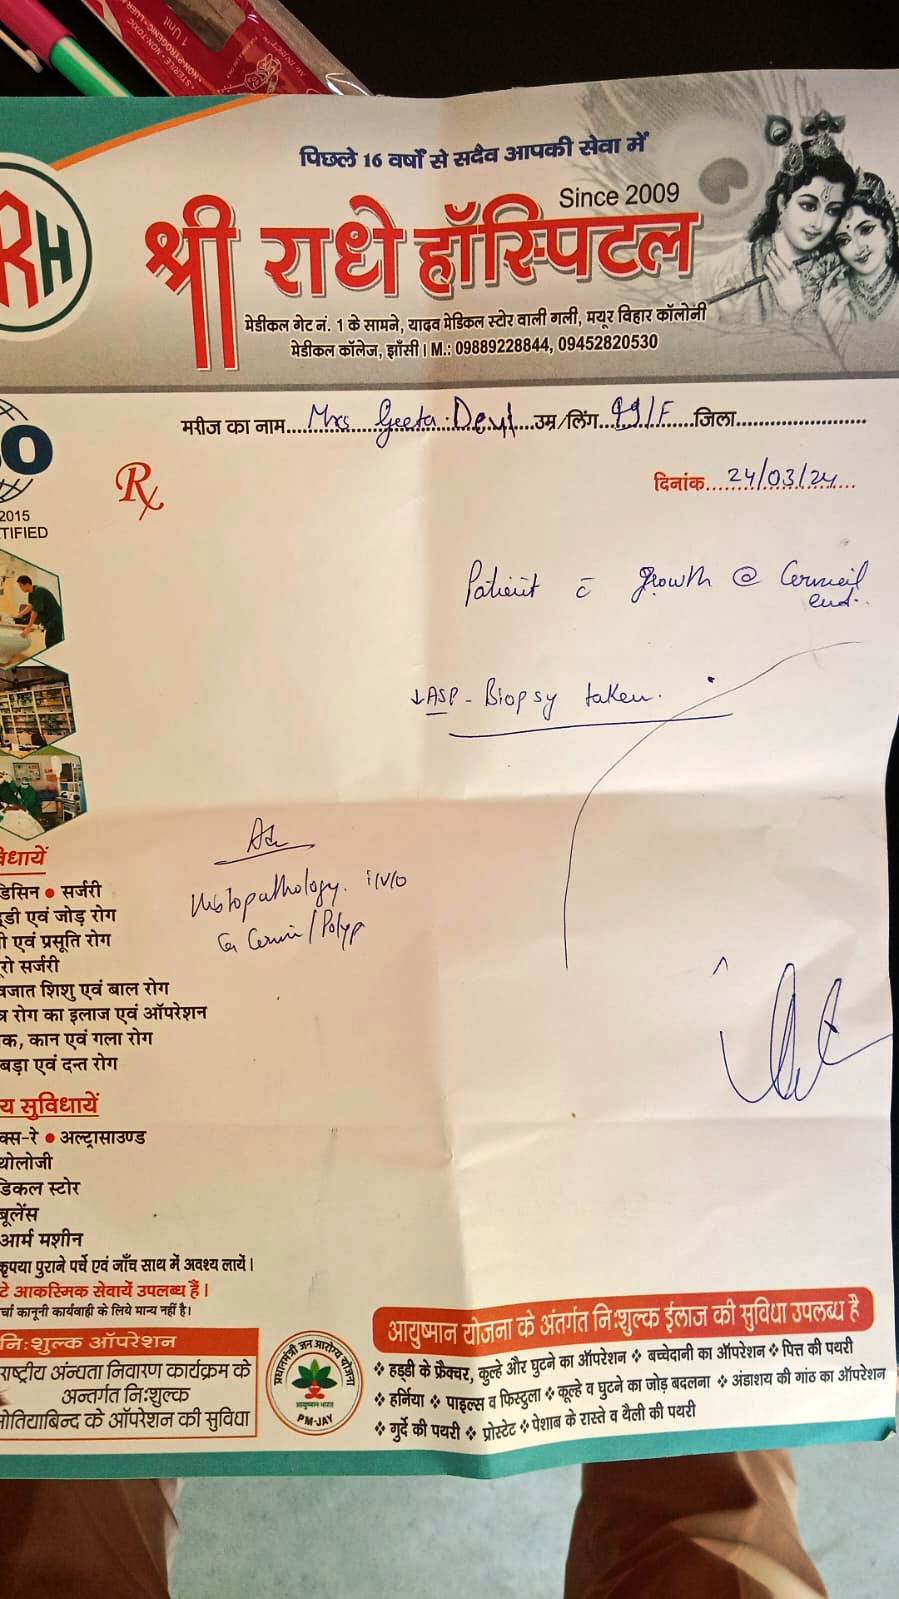 STERILE • NON-TOXIC
NON-PYROGENIC
1 Unit
पिछले 16 वर्षों से सदैव आपकी सेवा में
Since 2009
RH
श्री राधे हॉस्पिटल
मेडीकल गेट नं. 1 के सामने, यादव मेडिकल स्टोर वाली गली, मयूर विहार कॉलोनी
मेडीकल कॉलेज, झाँसी। M.: 09889228844, 09452820530
मरीज का नाम Mrs Geeta Devi उम्र/लिंग /F जिला
2015
TIFIED
Rx
दिनांक 24/03/24
Patient c̄ growth @ Cervical
end..
↓ ASP - Biopsy taken.
Adv
Histopathology. i/v/o
Ca Cervix/Polyp
विधायें
डिसिन • सर्जरी
ड्डी एवं जोड़ रोग
ी एवं प्रसूति रोग
रो सर्जरी
वजात शिशु एवं बाल रोग
त्र रोग का इलाज एवं ऑपरेशन
क, कान एवं गला रोग
बड़ा एवं दन्त रोग
य सुविधायें
क्स-रे • अल्ट्रासाउण्ड
थोलोजी
डिकल स्टोर
बूलेंस
आर्म मशीन
कृपया पुराने पर्चे एवं जाँच साथ में अवश्य लायें।
टे आकस्मिक सेवायें उपलब्ध हैं।
र्चा कानूनी कार्यवाही के लिये मान्य नहीं है।
निःशुल्क ऑपरेशन
राष्ट्रीय अंन्धता निवारण कार्यक्रम के
अन्तर्गत निःशुल्क
मोतियाबिन्द के ऑपरेशन की सुविधा
प्रधानमंत्री जन आरोग्य योजना
आयुष्मान भारत
PM-JAY
आयुष्मान योजना के अंतर्गत निःशुल्क ईलाज की सुविधा उपलब्ध है
❖ हड्डी के फ्रैक्चर, कूल्हे और घुटने का ऑपरेशन ❖ बच्चेदानी का ऑपरेशन ❖ पित्त की पथरी
❖ हर्निया ❖ पाइल्स व फिस्टुला ❖ कूल्हे व घुटने का जोड़ बदलना ❖ अंडाशय की गांठ का ऑपरेशन
❖ गुर्दे की पथरी ❖ प्रोस्टेट ❖ पेशाब के रास्ते व थैली की पथरी